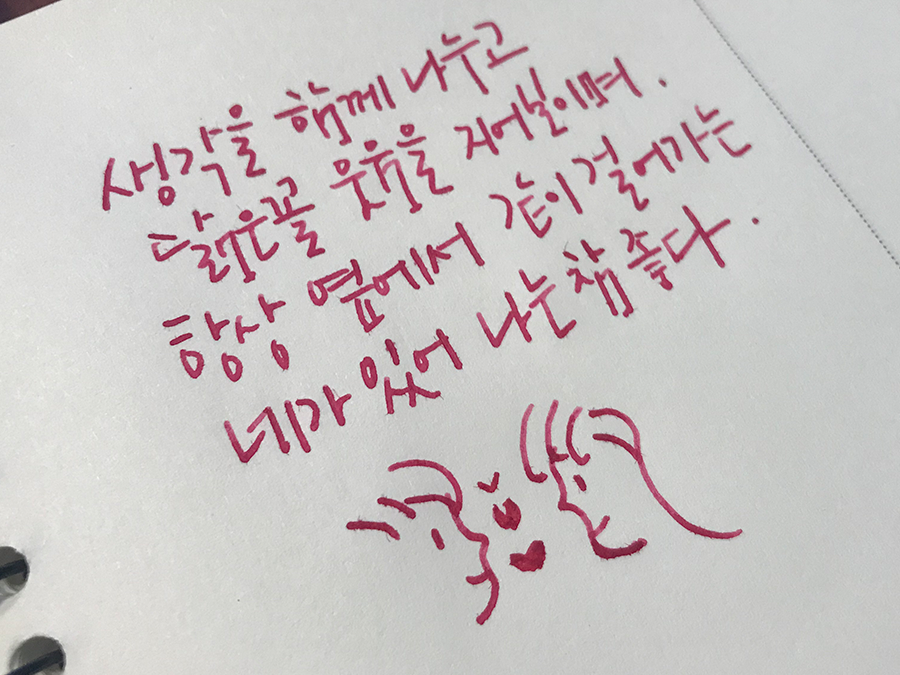 생각을 함께 나누고
닮은꼴 웃음을 지어보이며.
항상 옆에서 같이 걸어가는
네가 있어 나는 참 좋다.